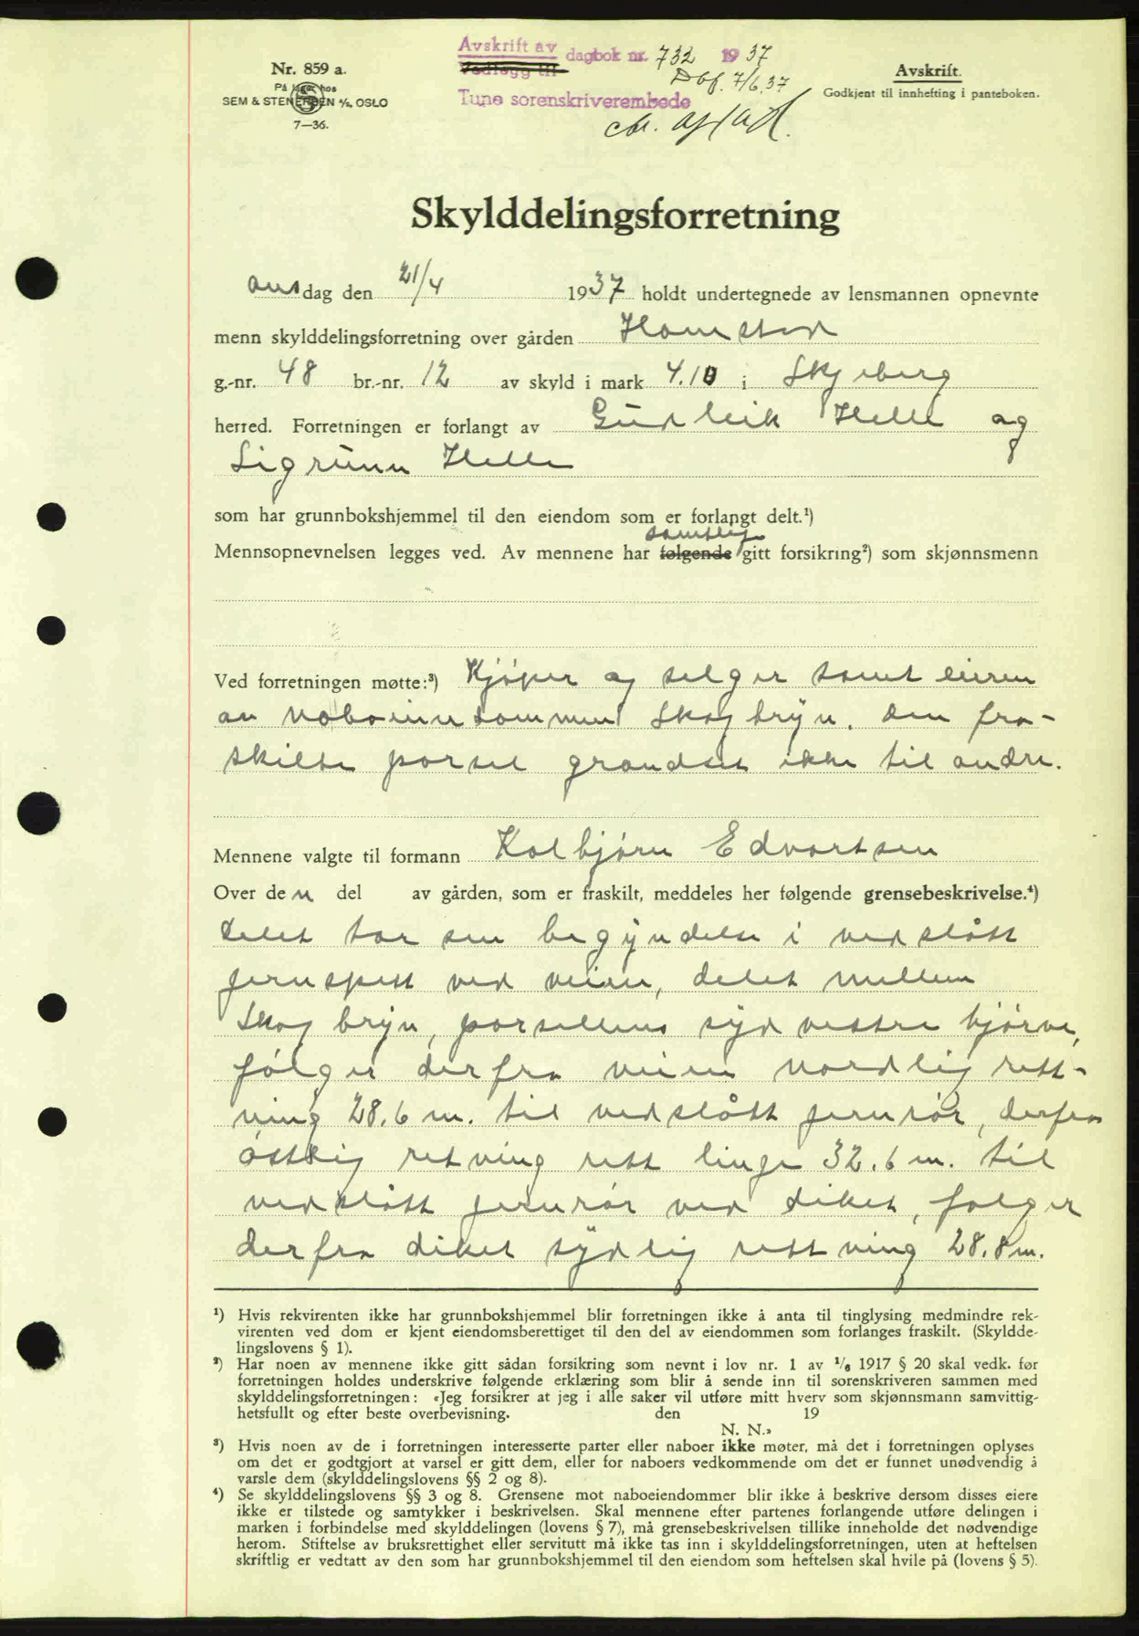 Nr. 859 a.
På lager hos
SEM & STENERSEN A/S, OSLO
7—36.
Avskrift av dagbok nr. 732 1937
Vedlegg til
Dbf. 7/6.37
Tune sorenskriverembede
Avskrift.
Godkjent til innhefting i panteboken.
Skylddelingsforretning
onsdag den 21/4 1937 holdt undertegnede av lensmannen opnevnte
menn skylddelingsforretning over gården Hamstad
g.-nr. 48 br.-nr. 12 av skyld i mark 4.10 i Skjeberg
herred. Forretningen er forlangt av Gudleik Helle og
Sigrunn Helle
som har grunnbokshjemmel til den eiendom som er forlangt delt.¹)
samtlige
Mennsopnevnelsen legges ved. Av mennene har følgende gitt forsikring²) som skjønnsmenn
Ved forretningen møtte:³) Kjøper og selger samt eieren
av naboeiendommen Skogbryn. Den fra-
skilte parsel grandset ikke til andre.
Mennene valgte til formann Kolbjørn Edvartsen
Over den del av gården, som er fraskilt, meddeles her følgende grensebeskrivelse.⁴)
Delet tar sin begyndelse i nedslått
jernspett ved veien, delet mellem
Skogbryn, parsellens sydvestre hjørne,
følger derfra veien nordlig rett-
ning 28.6 m. til nedslått jernrør, derfra
østlig retning rett linje 32.6 m. til
nedslått jernrør ved diket, følger
derfra diket sydlig rettning 28.8 m.
¹) Hvis rekvirenten ikke har grunnbokshjemmel blir forretningen ikke å anta til tinglysing medmindre rek-
virenten ved dom er kjent eiendomsberettiget til den del av eiendommen som forlanges fraskilt. (Skyldde-
lingslovens § 1).
²) Har noen av mennene ikke gitt sådan forsikring som nevnt i lov nr. 1 av 1/6 1917 § 20 skal vedk. før
forretningen holdes underskrive følgende erklæring som blir å sende inn til sorenskriveren sammen med
skylddelingsforretningen: «Jeg forsikrer at jeg i alle saker vil utføre mitt hverv som skjønnsmann samvittig-
hetsfullt og efter beste overbevisning. den 19
N. N.»
³) Hvis noen av de i forretningen interesserte parter eller naboer ikke møter, må det i forretningen oplyses
om det er godtgjort at varsel er gitt dem, eller for naboers vedkommende om det er funnet unødvendig å
varsle dem (skylddelingslovens §§ 2 og 8).
⁴) Se skylddelingslovens §§ 3 og 8. Grensene mot naboeiendommer blir ikke å beskrive dersom disses eiere
ikke er tilstede og samtykker i beskrivelsen. Skal mennene efter partenes forlangende utføre delingen i
marken i forbindelse med skylddelingen (lovens § 7), må grensebeskrivelsen tillike inneholde det nødvendige
herom. Stiftelse av bruksrettighet eller servitutt må ikke tas inn i skylddelingsforretningen, uten at heftelsen
skriftlig er vedtatt av den som har grunnbokshjemmel til den eiendom som heftelsen skal hvile på (lovens § 5).